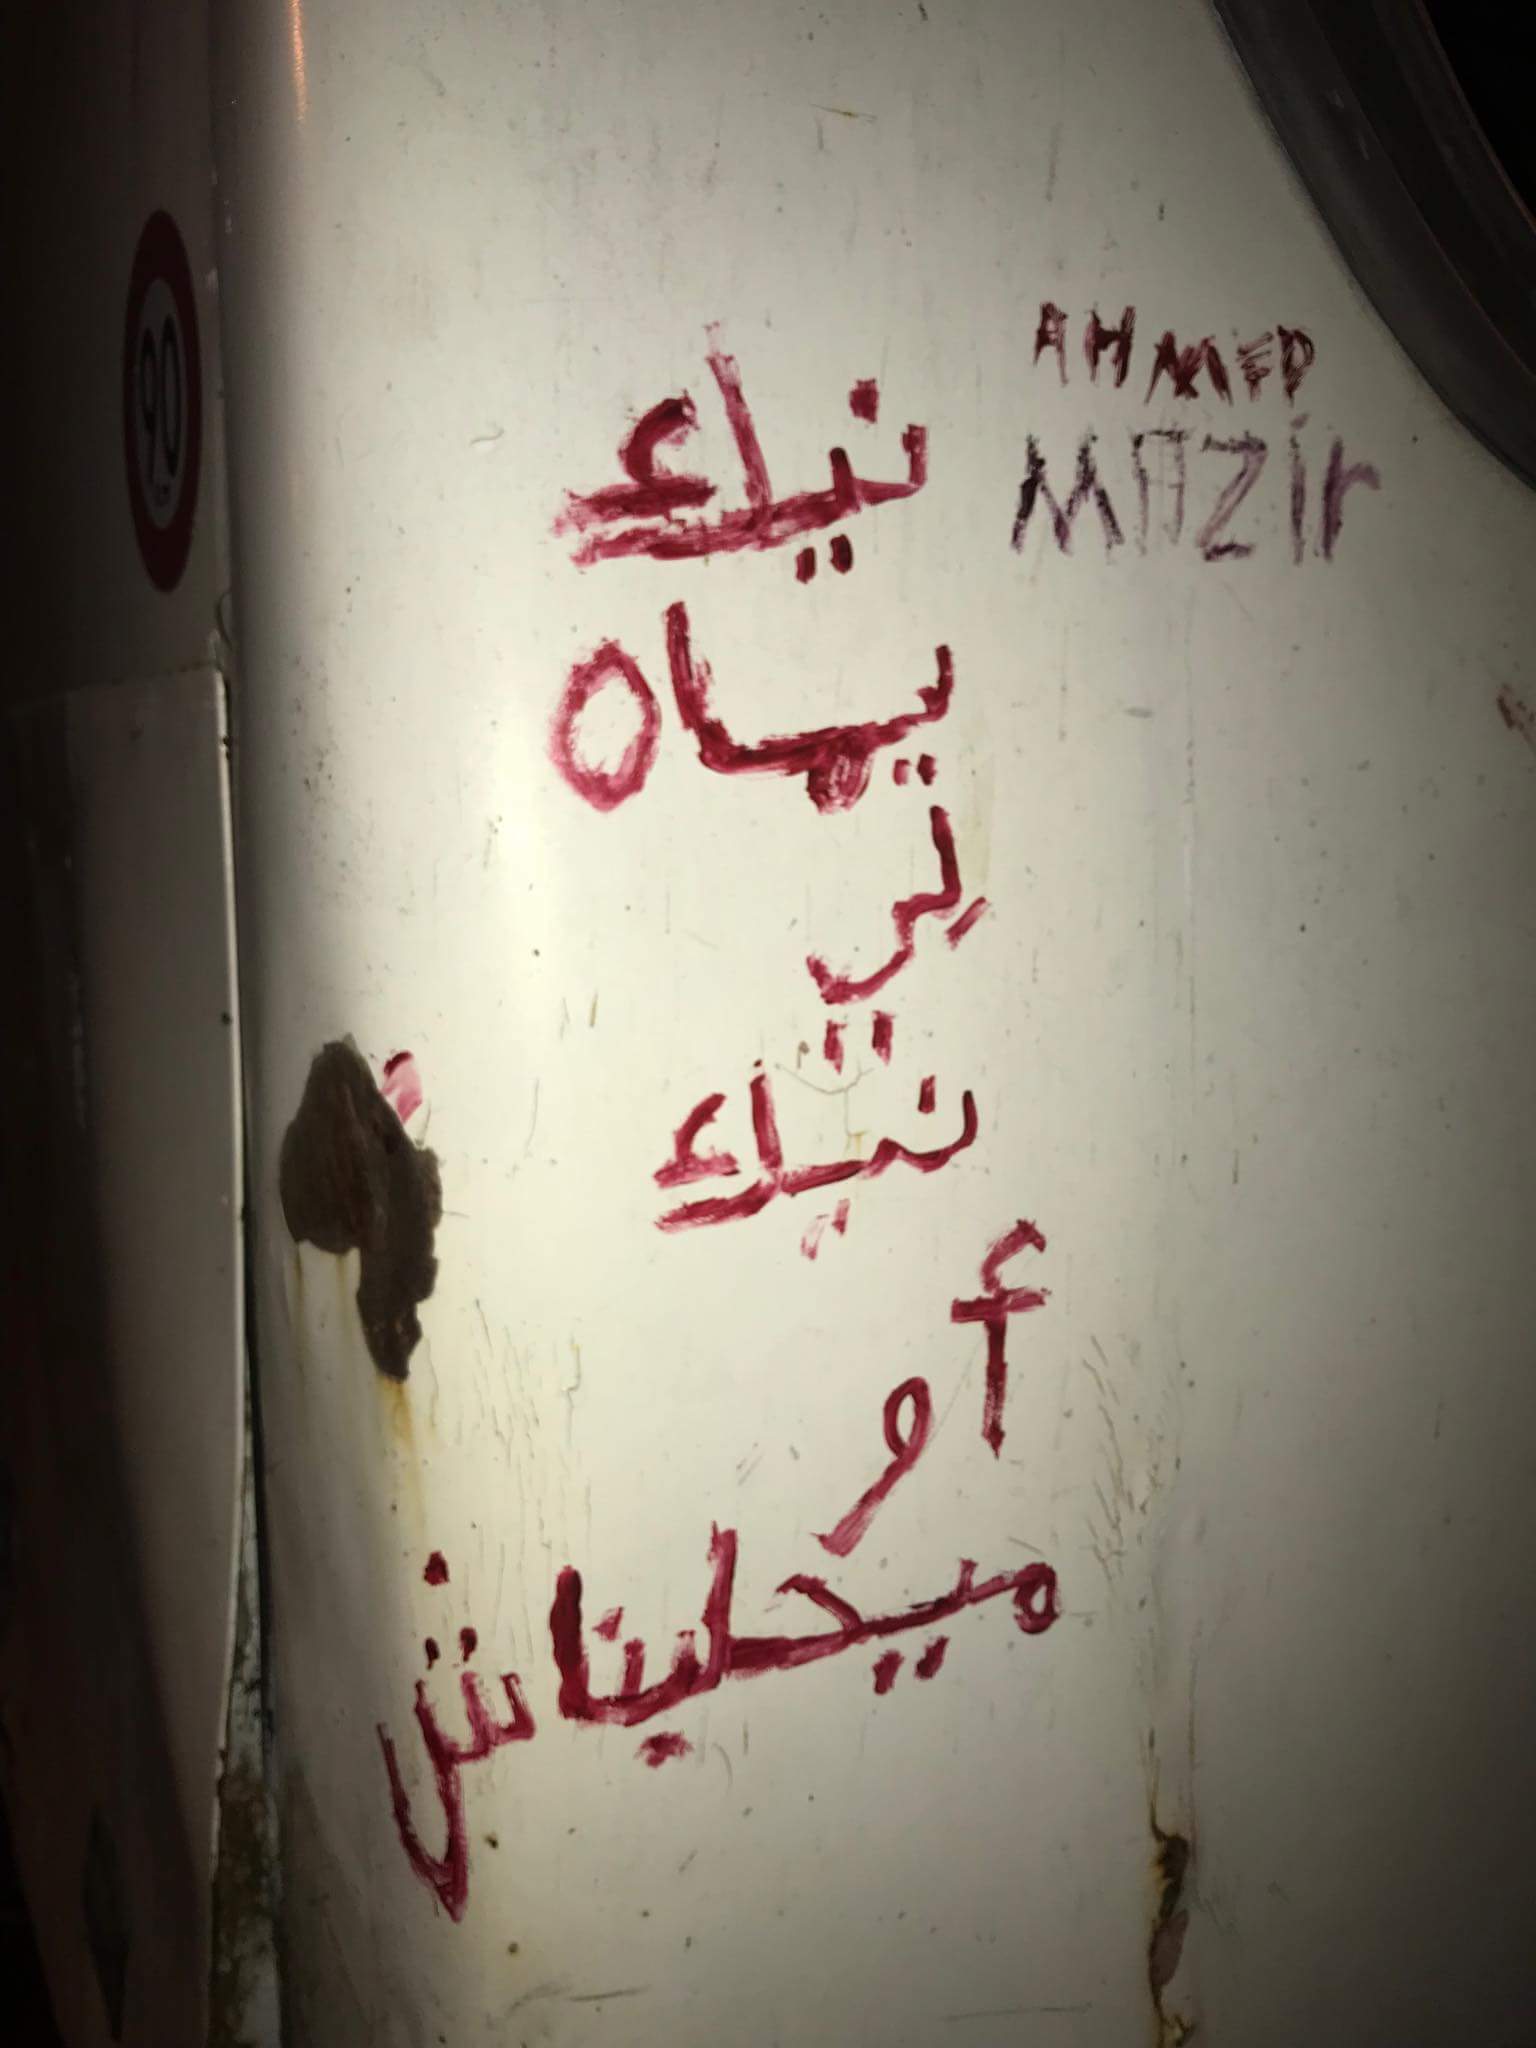 AHMED
MAZir
نيك
يماه
لي
نيك
أ
و
ميحليناش
90